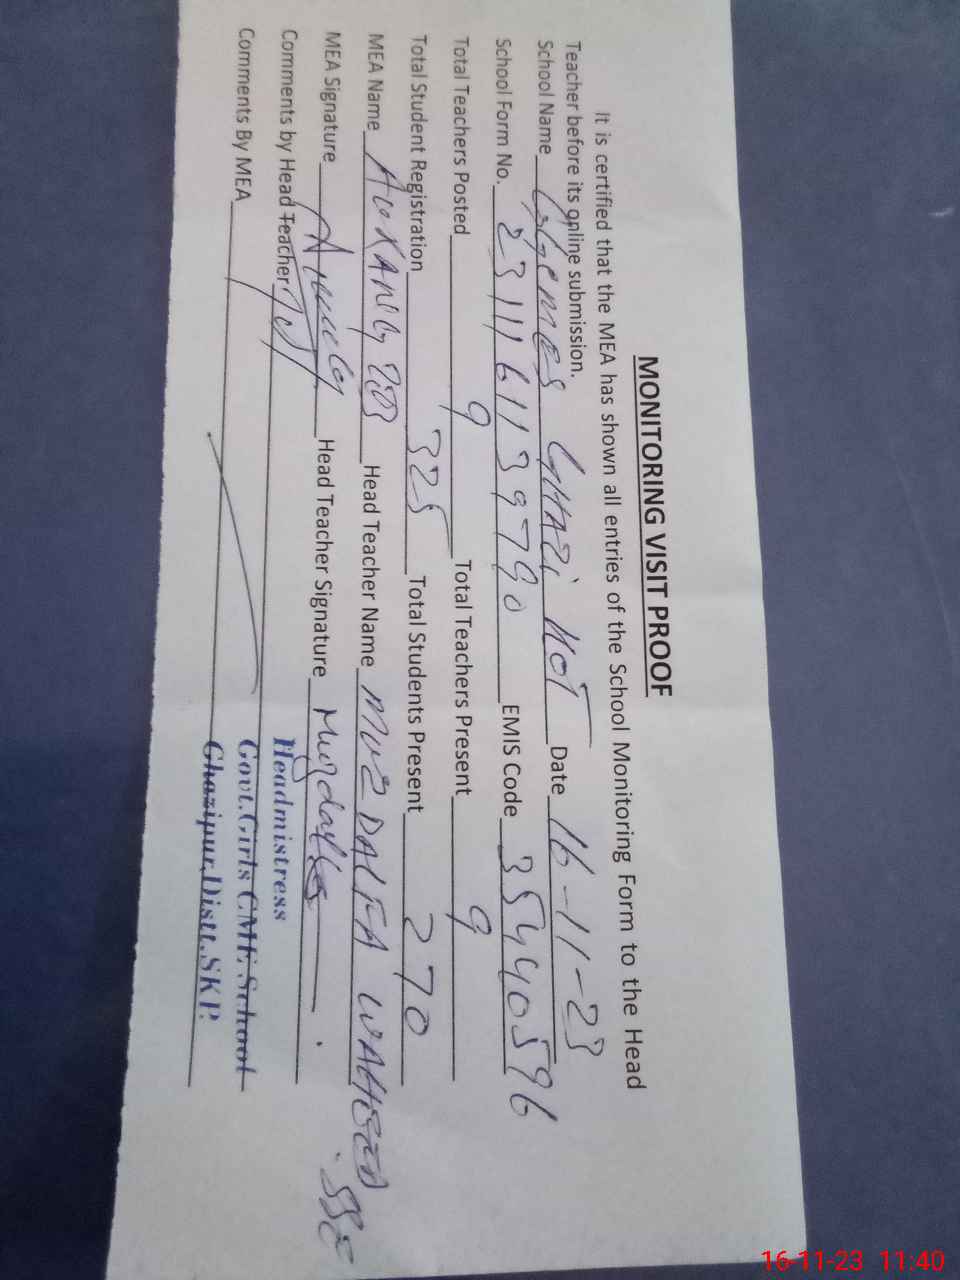 MONITORING VISIT PROOF
It is certified that the MEA has shown all entries of the School Monitoring Form to the Head
Teacher before its online submission.
School Name GGCMES GHAZI KOT Date 16-11-23
School Form No. 2311161139790 EMIS Code 35440596
Total Teachers Posted 9 Total Teachers Present 9
Total Student Registration 325 Total Students Present 270
MEA Name Head Teacher Name MUZDALFA WAHEED
MEA Signature Head Teacher Signature SSE
Comments by Head Teacher
Headmistress
Comments By MEA
Govt.Girls CME School
Ghazipur,Distt.SKP.
16-11-23 11:40